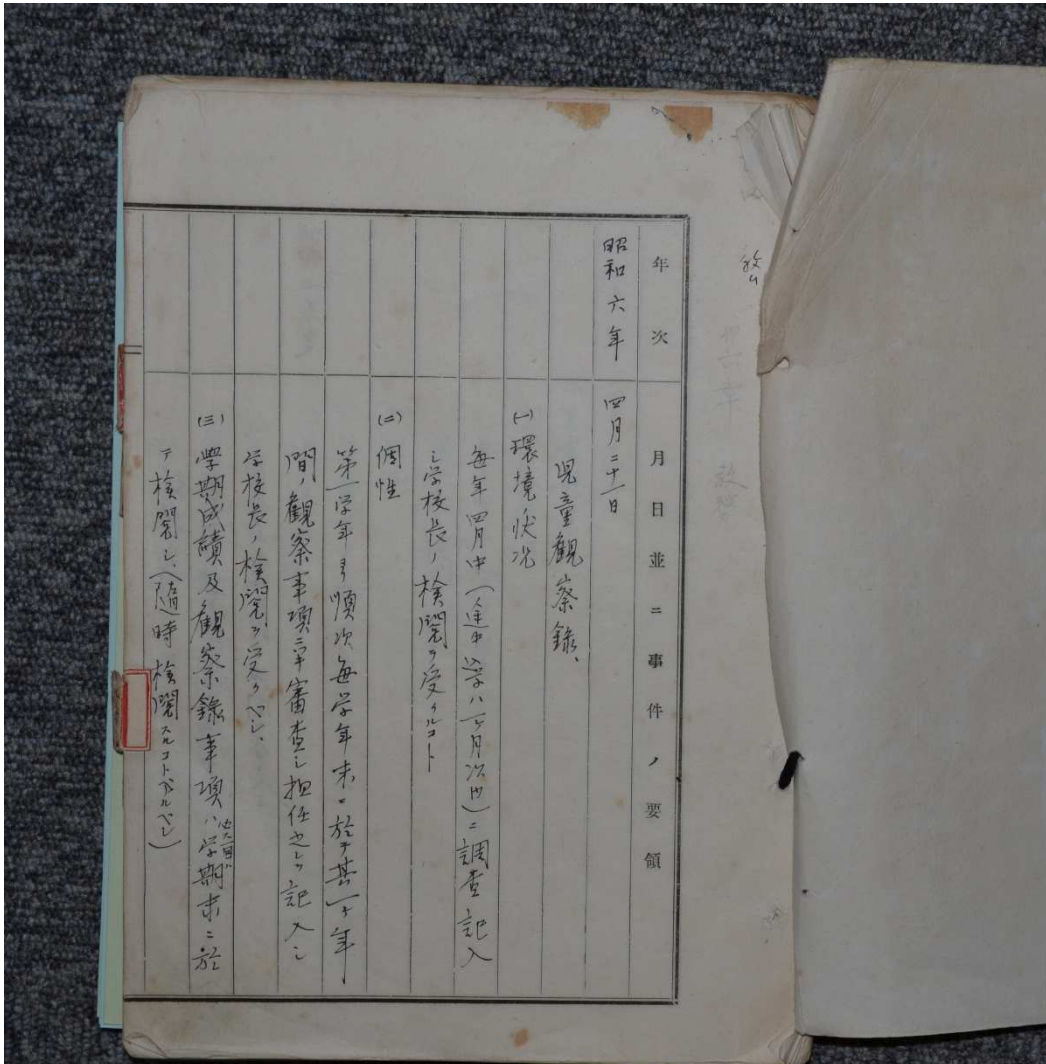 年次
月日並ニ事件ノ要領
昭和六年
四月二十一日
児童観察録、
(一)環境状況
毎年四月中(途中入学ハ一ヶ月以内)ニ調査記入
シ学校長ノ検閲ヲ受クルコト
(二)個性
第一学年ヨリ順次毎学年末ニ於テ其一ケ年
間ノ観察事項ニ審査シ担任之レヲ記入シ
学校長ノ検閲ヲ受クベシ、
(三)學期成績及観察錄事項ハ学期末ニ於
テ検閲シ、(随時検閲スルコトアルベシ)